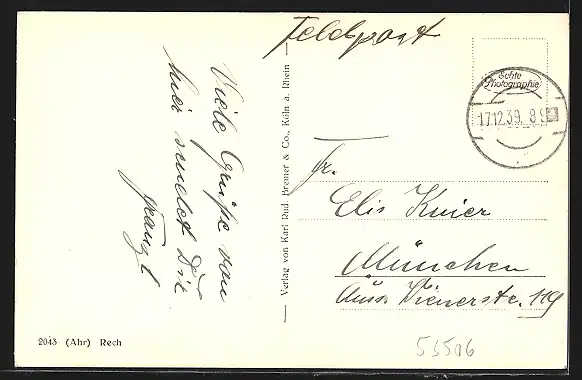 Feldpost
Echte
Photographie
17.12.39. 8 9
Viele Grüße von
hier sendet Dir
Franzl
Verlag von Karl Rud. Bremer & Co., Köln a. Rhein
Fr.
Elis Knier
München
Äuss. Wienerstr. 119
2043 (Ahr) Rech
53506